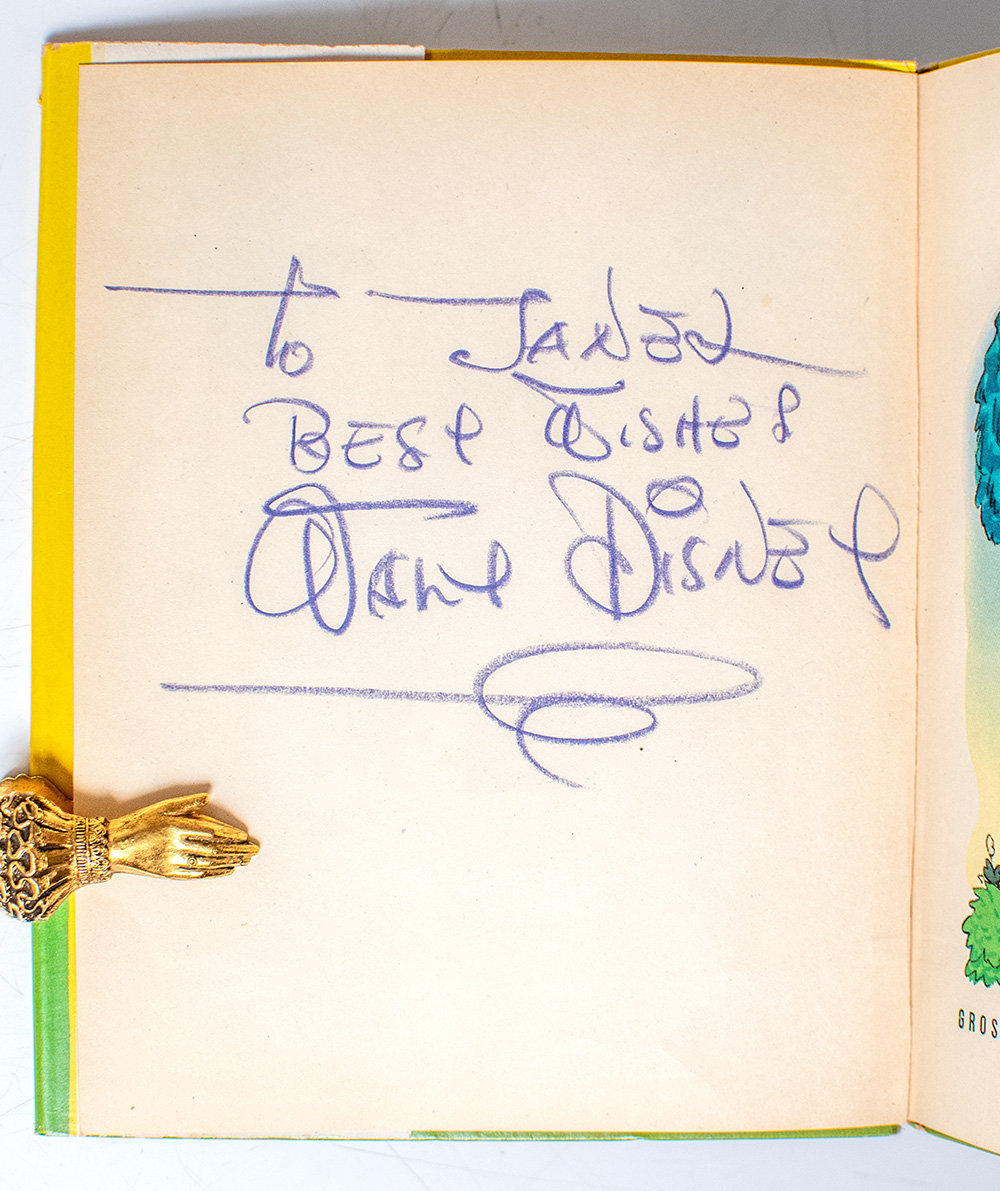 To Janet
Best Wishes
Walt Disney
GROS